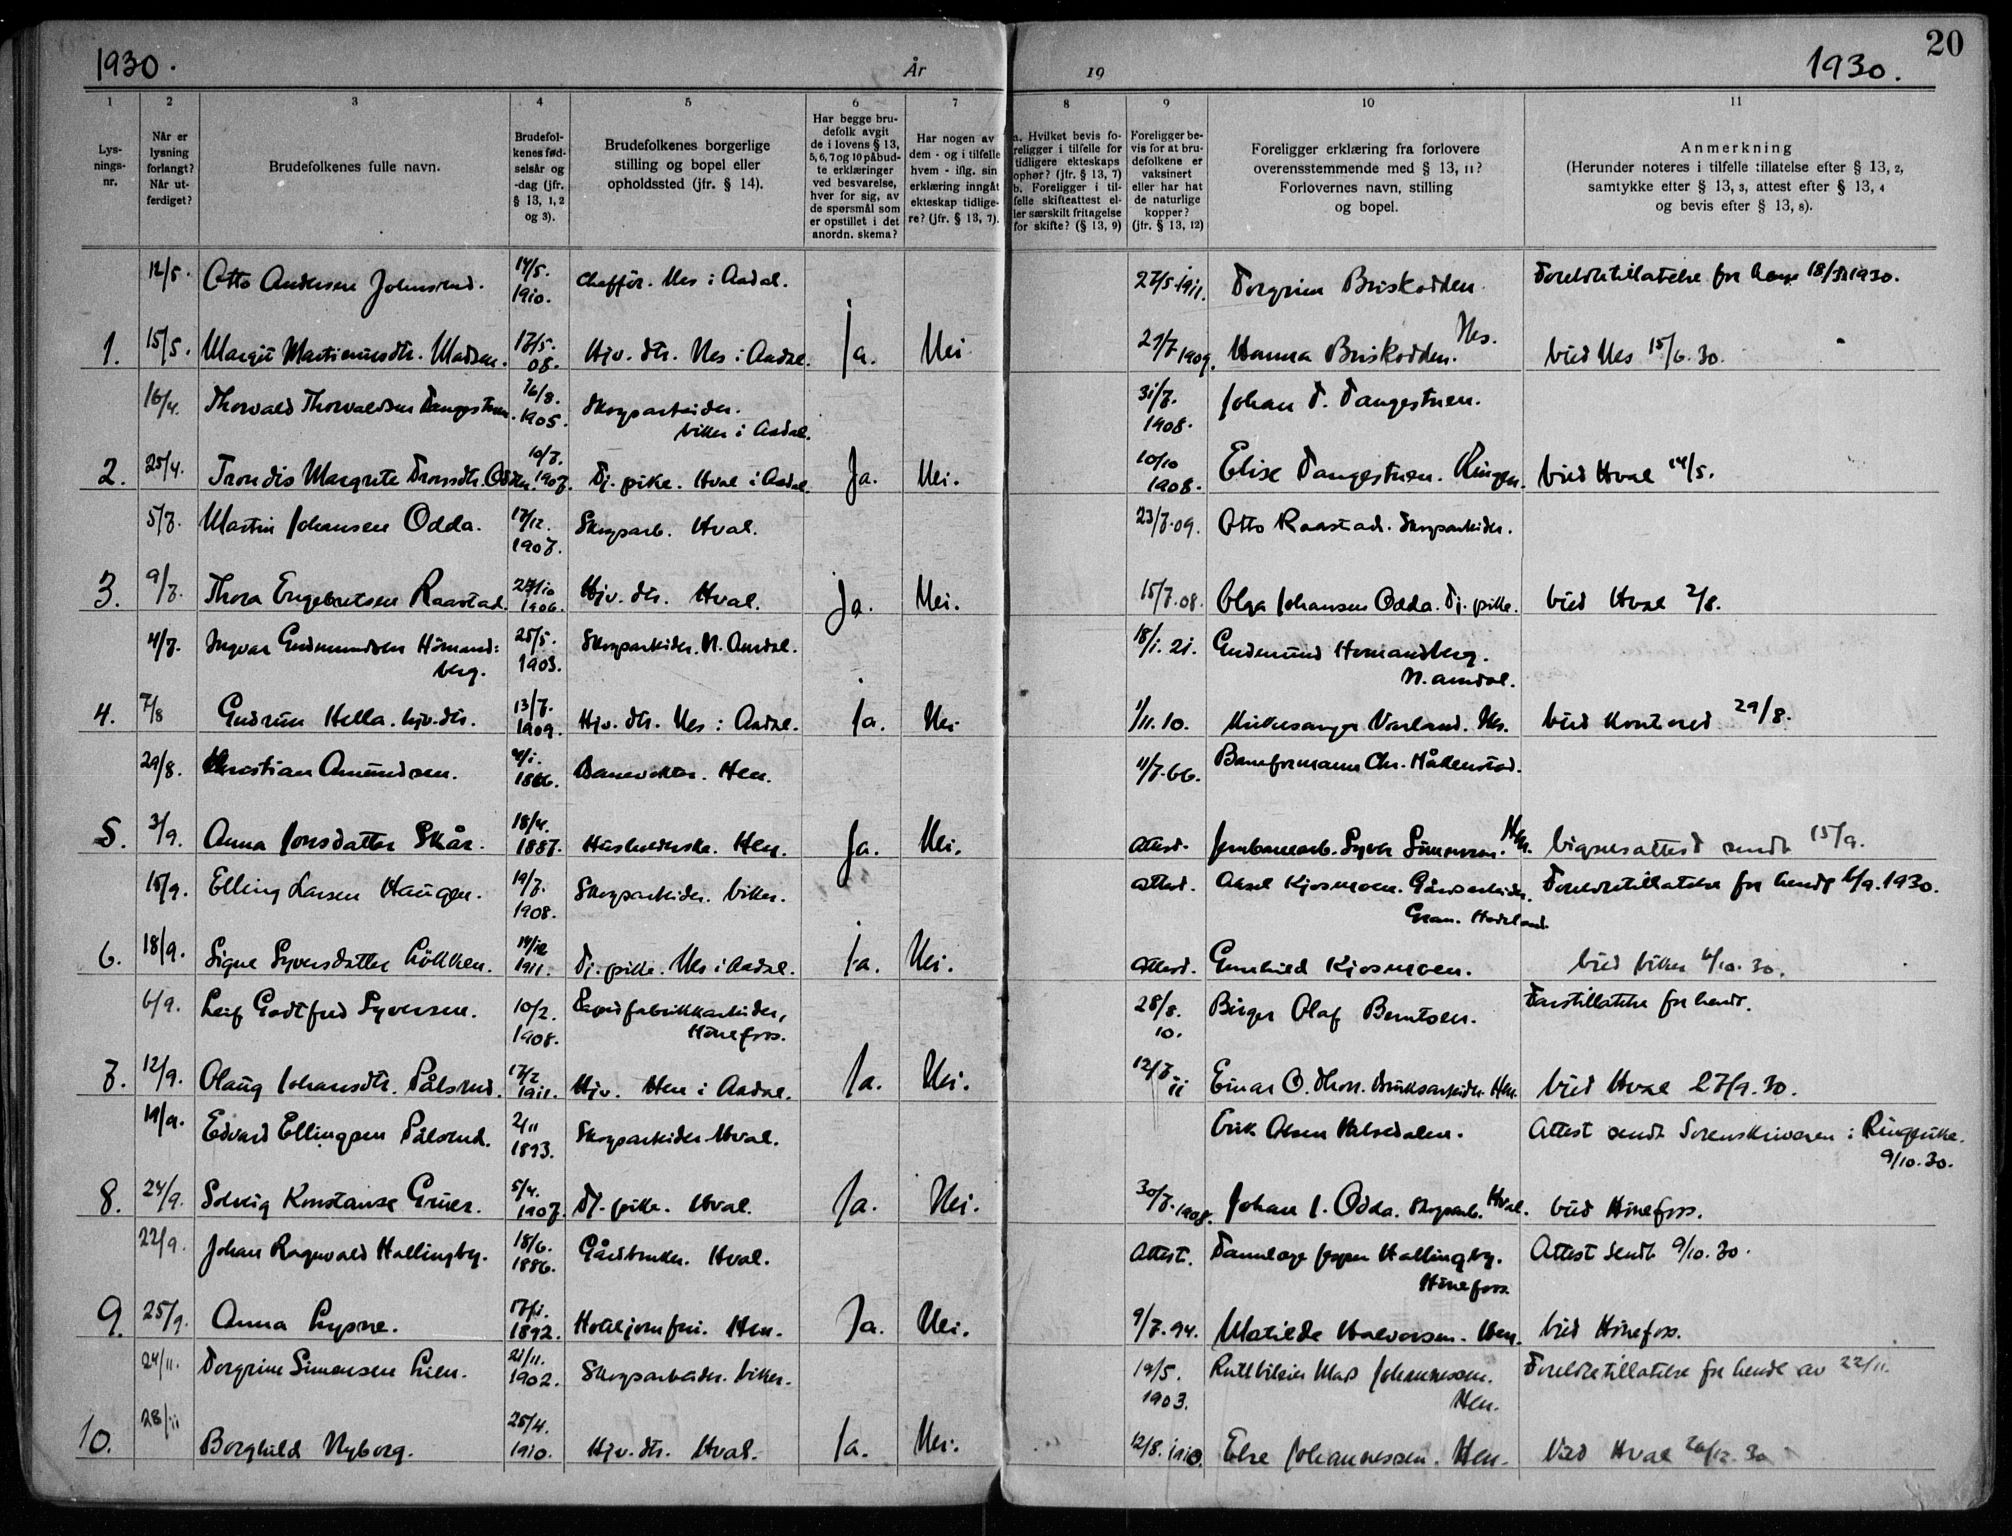 1930.
År
19
1930.
20
1
2
3
4
5
6
7
8
9
10
11
Lys-
nings-
nr.
Når er
lysning
forlangt?
Når ut-
ferdiget?
Brudefolkenes fulle navn.
Brudefol-
kenes fød-
selsår og
-dag (jfr.
§ 13, 1, 2
og 3).
Brudefolkenes borgerlige
stilling og bopel eller
opholdssted (jfr. § 14).
Har begge bru-
defolk avgit
de i lovens § 13,
5, 6, 7 og 10 påbud-
te erklæringer
ved besvarelse,
hver for sig, av
de spørsmål som
er opstillet i det
anordn. skema?
Har nogen av
dem - og i tilfelle
hvem - iflg. sin
erklæring inngåt
ekteskap tidlige-
re? (jfr. § 13, 7).
a. Hvilket bevis fo-
religger i tilfelle for
tidligere ekteskaps
ophør? (jfr. § 13, 7)
b. Foreligger i til-
felle skifteattest el-
ler særskilt fritagelse
for skifte? (§ 13, 9)
Foreligger be-
vis for at bru-
defolkene er
vaksinert
eller har hat
de naturlige
kopper?
(jfr. § 13, 12)
Foreligger erklæring fra forlovere
overensstemmende med § 13, 11?
Forlovernes navn, stilling
og bopel.
Anmerkning
(Herunder noteres i tilfelle tillatelse efter § 13, 2,
samtykke efter § 13, 3, attest efter § 13, 4
og bevis efter § 13, 8).
12/5. Otto Andersen Johnsrud. 14/5. 1910. Chafför. Nes i Aadal. 27/5-1911. Torgrim Briskodden. Foreldretillatelse for 1930.
1. 15/5. Margit Martinusdtr. Madsen. 17/5. 08. Hjv. dtr. Nes i Aadal. Ja. Nei 29/7 1909. Hanna Briskodden. Nes. Vied Nes 15/6. 30.
16/4. Thorvald Thorvaldsen Tangestuen. 16/8. 1905. Skogsarbeider. Viker i Aadal. 31/7. 1908. Johan T. Tangestuen.
2. 25/4. Trondis Margrete Tronsdtr. 10/7. 1907. Tj. pike. Hval i Aadal. Ja. Nei. 10/10 1908. Elise Tangestuen. Ringer. Vied Hval 14/5.
5/7. Martin Johansen Odda. 17/12. 1907. Skogsarb. Hval. 23/7-09. Otto Raastad. Skogsarbeider.
3. 9/7. Thora Engebretsen Raastad. 1906. Hjv. dtr. Hval. Ja. Nei. 15/7-08. Olga Johansen Odda. Tj. pike. Vied Hval 2/8.
4/7. Ingvar Gudmundsen Hömand:
berg. 25/5. 1903. Skogsarbeider. N. Aurdal. 18/1. 21. Gudmund Homandberg.
N. Aurdal.
4. 7/8 Gudrun Hella. hjv. dtr. 13/7. 1909. Hjv. dtr. Nes i Aadal. Ja. Nei 1/11. 10. Varland. Nes. Vied 29/8.
29/8. Kristian Amundsen. 1866. Banevokter. Hen. 11/7-66. Baneformann Chr. Håkenstad.
5. 3/9. Anna Jonsdatter Skår. 18/4. 1887. Husholderske. Hen. Ja. Nei. Attest. Jernbanearb. Syver Simensen. Hen. Vigselsattest sendt 15/9.
15/9. Elling Larsen Haugen. 19/7. 1908. Skogsarbeider. Viker. Attest. Aksel Kjosmoen. Gårdsarbeider.
Gran. Hadeland. Foreldretillatelse for hende 6/9. 1930.
6. 18/9. Signe Syversdatter Lökken. 14/12 1911. Tj. pike. Nes i Aadal. Ja. Nei. Attest. Gunhild Kjosmoen. Vied Viker 4/10. 30.
6/9. Leif Godtfred Syversen. 10/2. 1908. fabrikkarbeider,
Hönefoss. 28/8. 10. Birger Olaf Berntsen. Farstillatelse for hende.
7. 12/9. Olaug Johansdtr. Pålsrud. 17/2 1911. Hjv. Hen i Aadal. Ja. Nei. 12/7 11 Einar O. Thon. Bruksarbeider. Hen. Vied Hval 27/9. 30.
19/9. Edvard Ellingsen Pålsrud. 2/11 1893. Skogsarbeider Hval. Erik Olsen Halvedalen. Attest sendt Sorenskriveren i Ringerike.
9/10. 30.
8. 24/9. Solveig Konstanse Gruer. 5/4. 1907. Tj. pike. Hval. Ja. Nei. 30/7-1908. Johan J. Odda. Skogsarb. Hval. Vied Hönefoss.
22/9. Johan Ragnvald Hallingby. 18/6. 1886. Gårdbruker. Hval. Attest. Tannlæge Jesper Hallingby.
Hönefoss Attest sendt 9/10. 30.
9. 25/9. Anna Lysne. 17/1. 1892. Hotelljomfru. Hen. Ja. Nei. 9/7. 94. Matilde Halvorsen. Hen. Vied Hönefoss.
24/11. Torgrim Simensen Lien. 21/11. 1902. Skogsarbeider. Viker. 19/5. 1903. Rutebileier Mads Johannessen.
Hen. Foreldretillatelse for hende av 22/11.
10. 28/11 Borghild Nyborg. 25/4. 1910. Hjv. dtr. Hval. Ja. Nei. 12/8. 1910. Else Johannessen. Hen. Vied Hval 26/12. 30